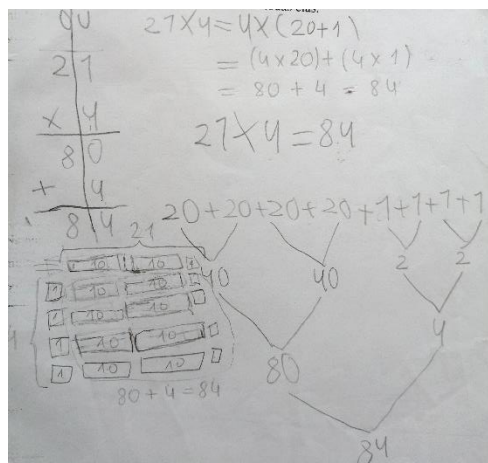 du
21
x 4
80
+ 4
84
21×4=4×(20+1)
=(4×20)+(4×1)
= 80 + 4 = 84
21×4=84
20+20+20+20+1+1+1+1
40 40 2 2
80 4
84
21
10 10
1 10 10
1 10 10
1 10 10
1 10 10
4
80+4=84